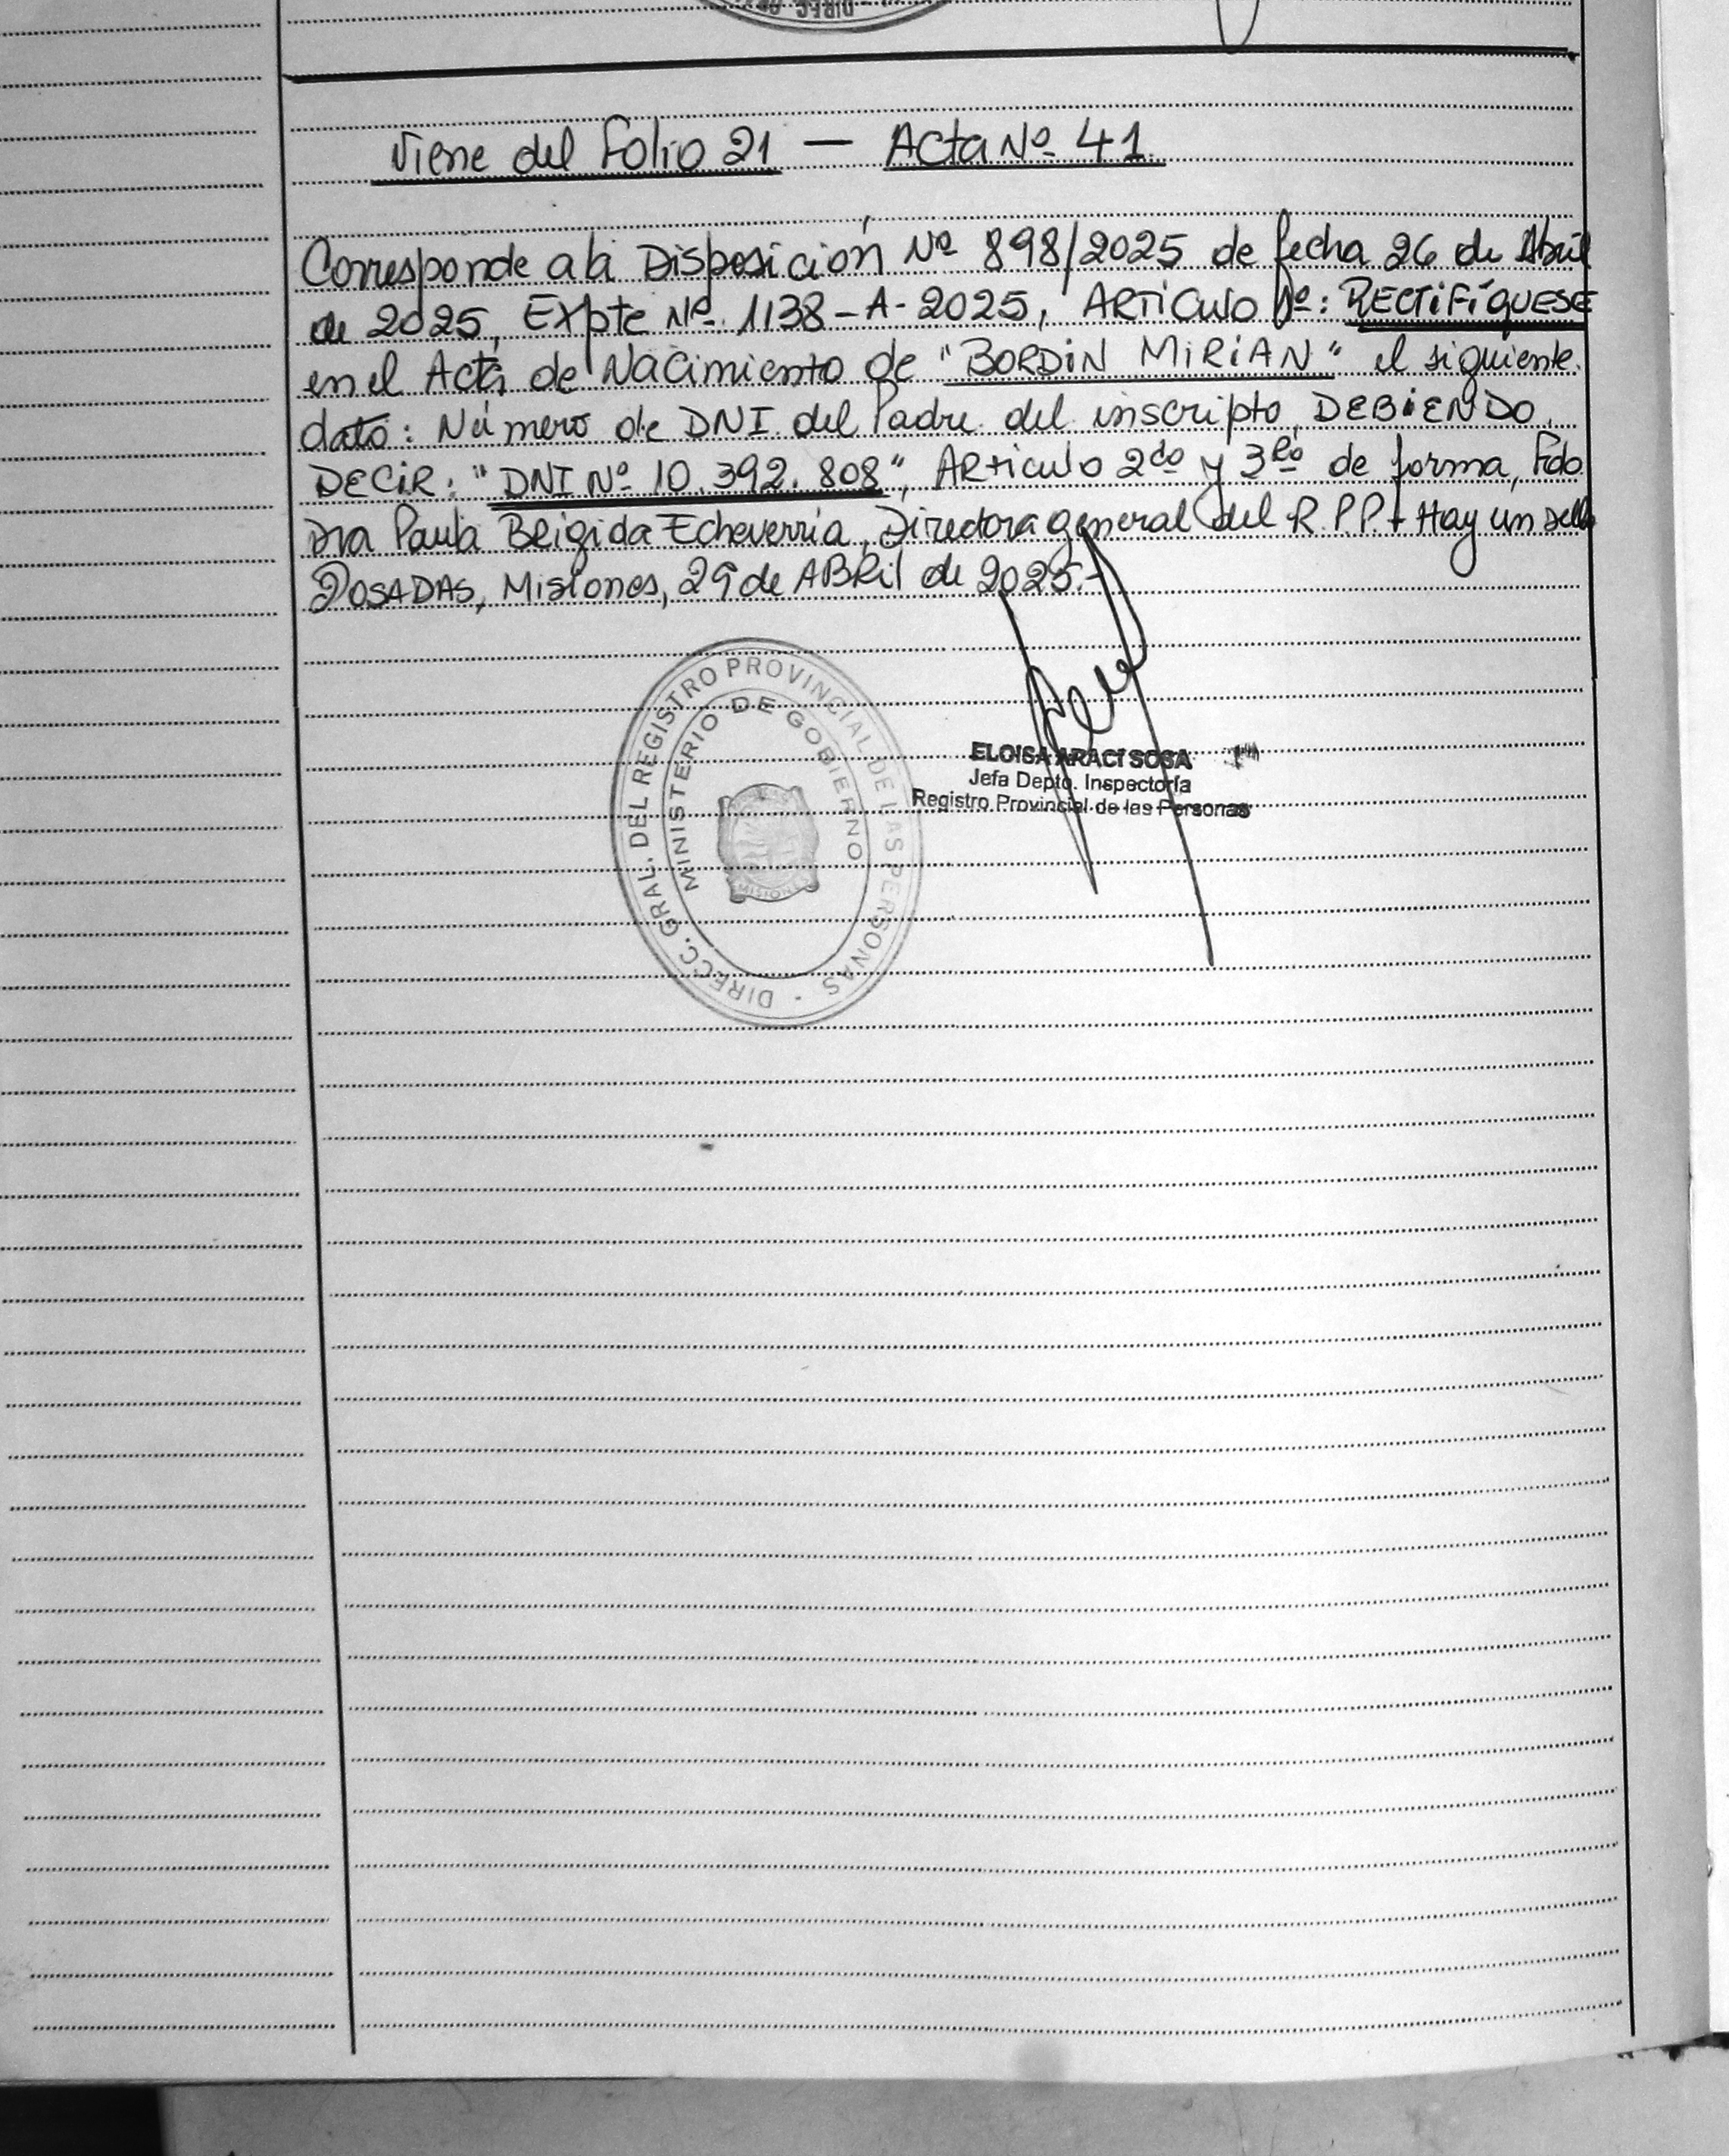 Viene del Folio 21 — Acta Nº 41
Corresponde a la Disposición Nº 898/2025 de fecha 26 de Abril
de 2025, Expte Nº 1138-A-2025, ARTiCulo 1º: RECTiFíQUESE
en el Acta de Nacimiento de "BORDiN MiRiAN" el siguiente
dato: Número de DNI del Padre del inscripto, DEBiENDO
DECiR: "DNI Nº 10.392.808", ARticulo 2do y 3Ro de forma, Fdo
Dra Paula BRigida Echeverria, Directora general del R.P.P. + Hay un sello
POSADAS, Misiones, 29 de ABRil de 2025.-
DIRECC. GRAL. DEL REGISTRO PROVINCIAL DE LAS PERSONAS -
MINISTERIO DE GOBIERNO
MISIONES
ELOISA ARACÍ SOSA
Jefa Depto. Inspectoría
Registro Provincial de las Personas